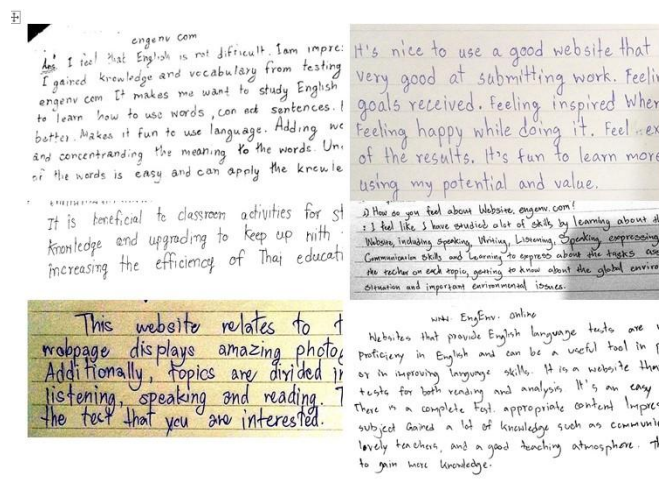 engenv com
Ans. I feel that English is not difficult. I am impre
I gained knowledge and vocabulary from testing
engenv com It makes me want to study English
to learn how to use words, con nect sentences.
better. Makes it fun to use language. Adding
and concentranding the meaning to the words. Un
of the words is easy and can apply the knowle
It is beneficial to classroom activities for st
knowledge and upgrading to keep up with
increasing the efficiency of Thai educati
This website relates to t
webpage displays amazing photog
Additionally, topics are divided in
listening, speaking and reading. T
the test that you are interested.
It's nice to use a good website that
very good at submitting work. Feelin
goals received. Feeling inspired when
Feeling happy while doing it. Feel ex
of the results. It's fun to learn more
using my potential and value.
How do you feel about Website, engenv.com?
: I feel like I have studied alot of skills by learning about th
Website, including speaking, Writing, Listening, Speaking expressing
Communication skills and Learning to express about the tasks as
the techer on each topic, getting to know about the global enviro
situation and important environmental issues.
www. EngEnv. online
Websites that provide English language tests are
Proficieny in English and can be a useful tool in p
or in improving language skills. It is a website tha
tests for both reading and analysis It's an easy
There is a complete Test. appropriate content Impres
subject Gained a lot of knowledge such as communi
lovely teachers, and a good teaching atmosphere. Th
to gain more knowledge.